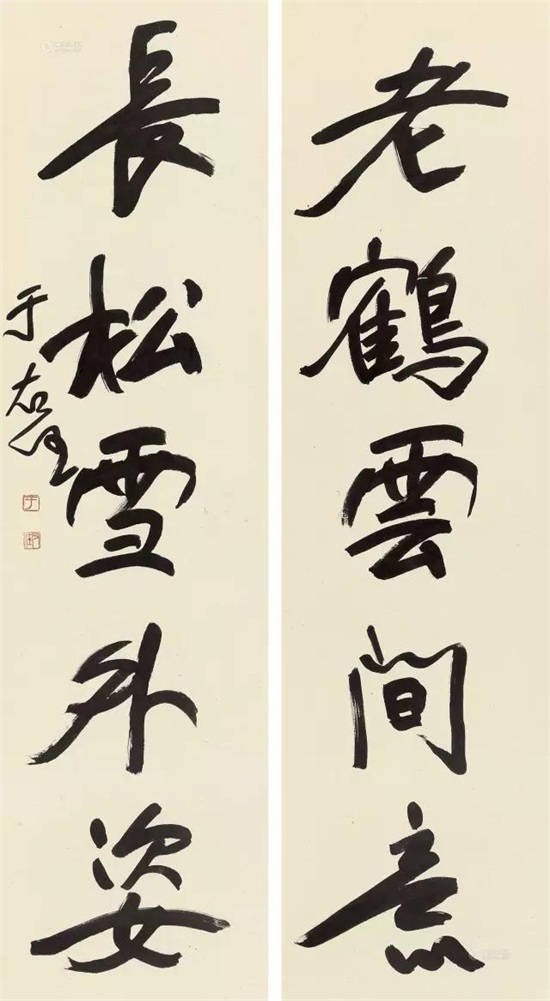 老鶴雲間意
長松雪外姿
于右任